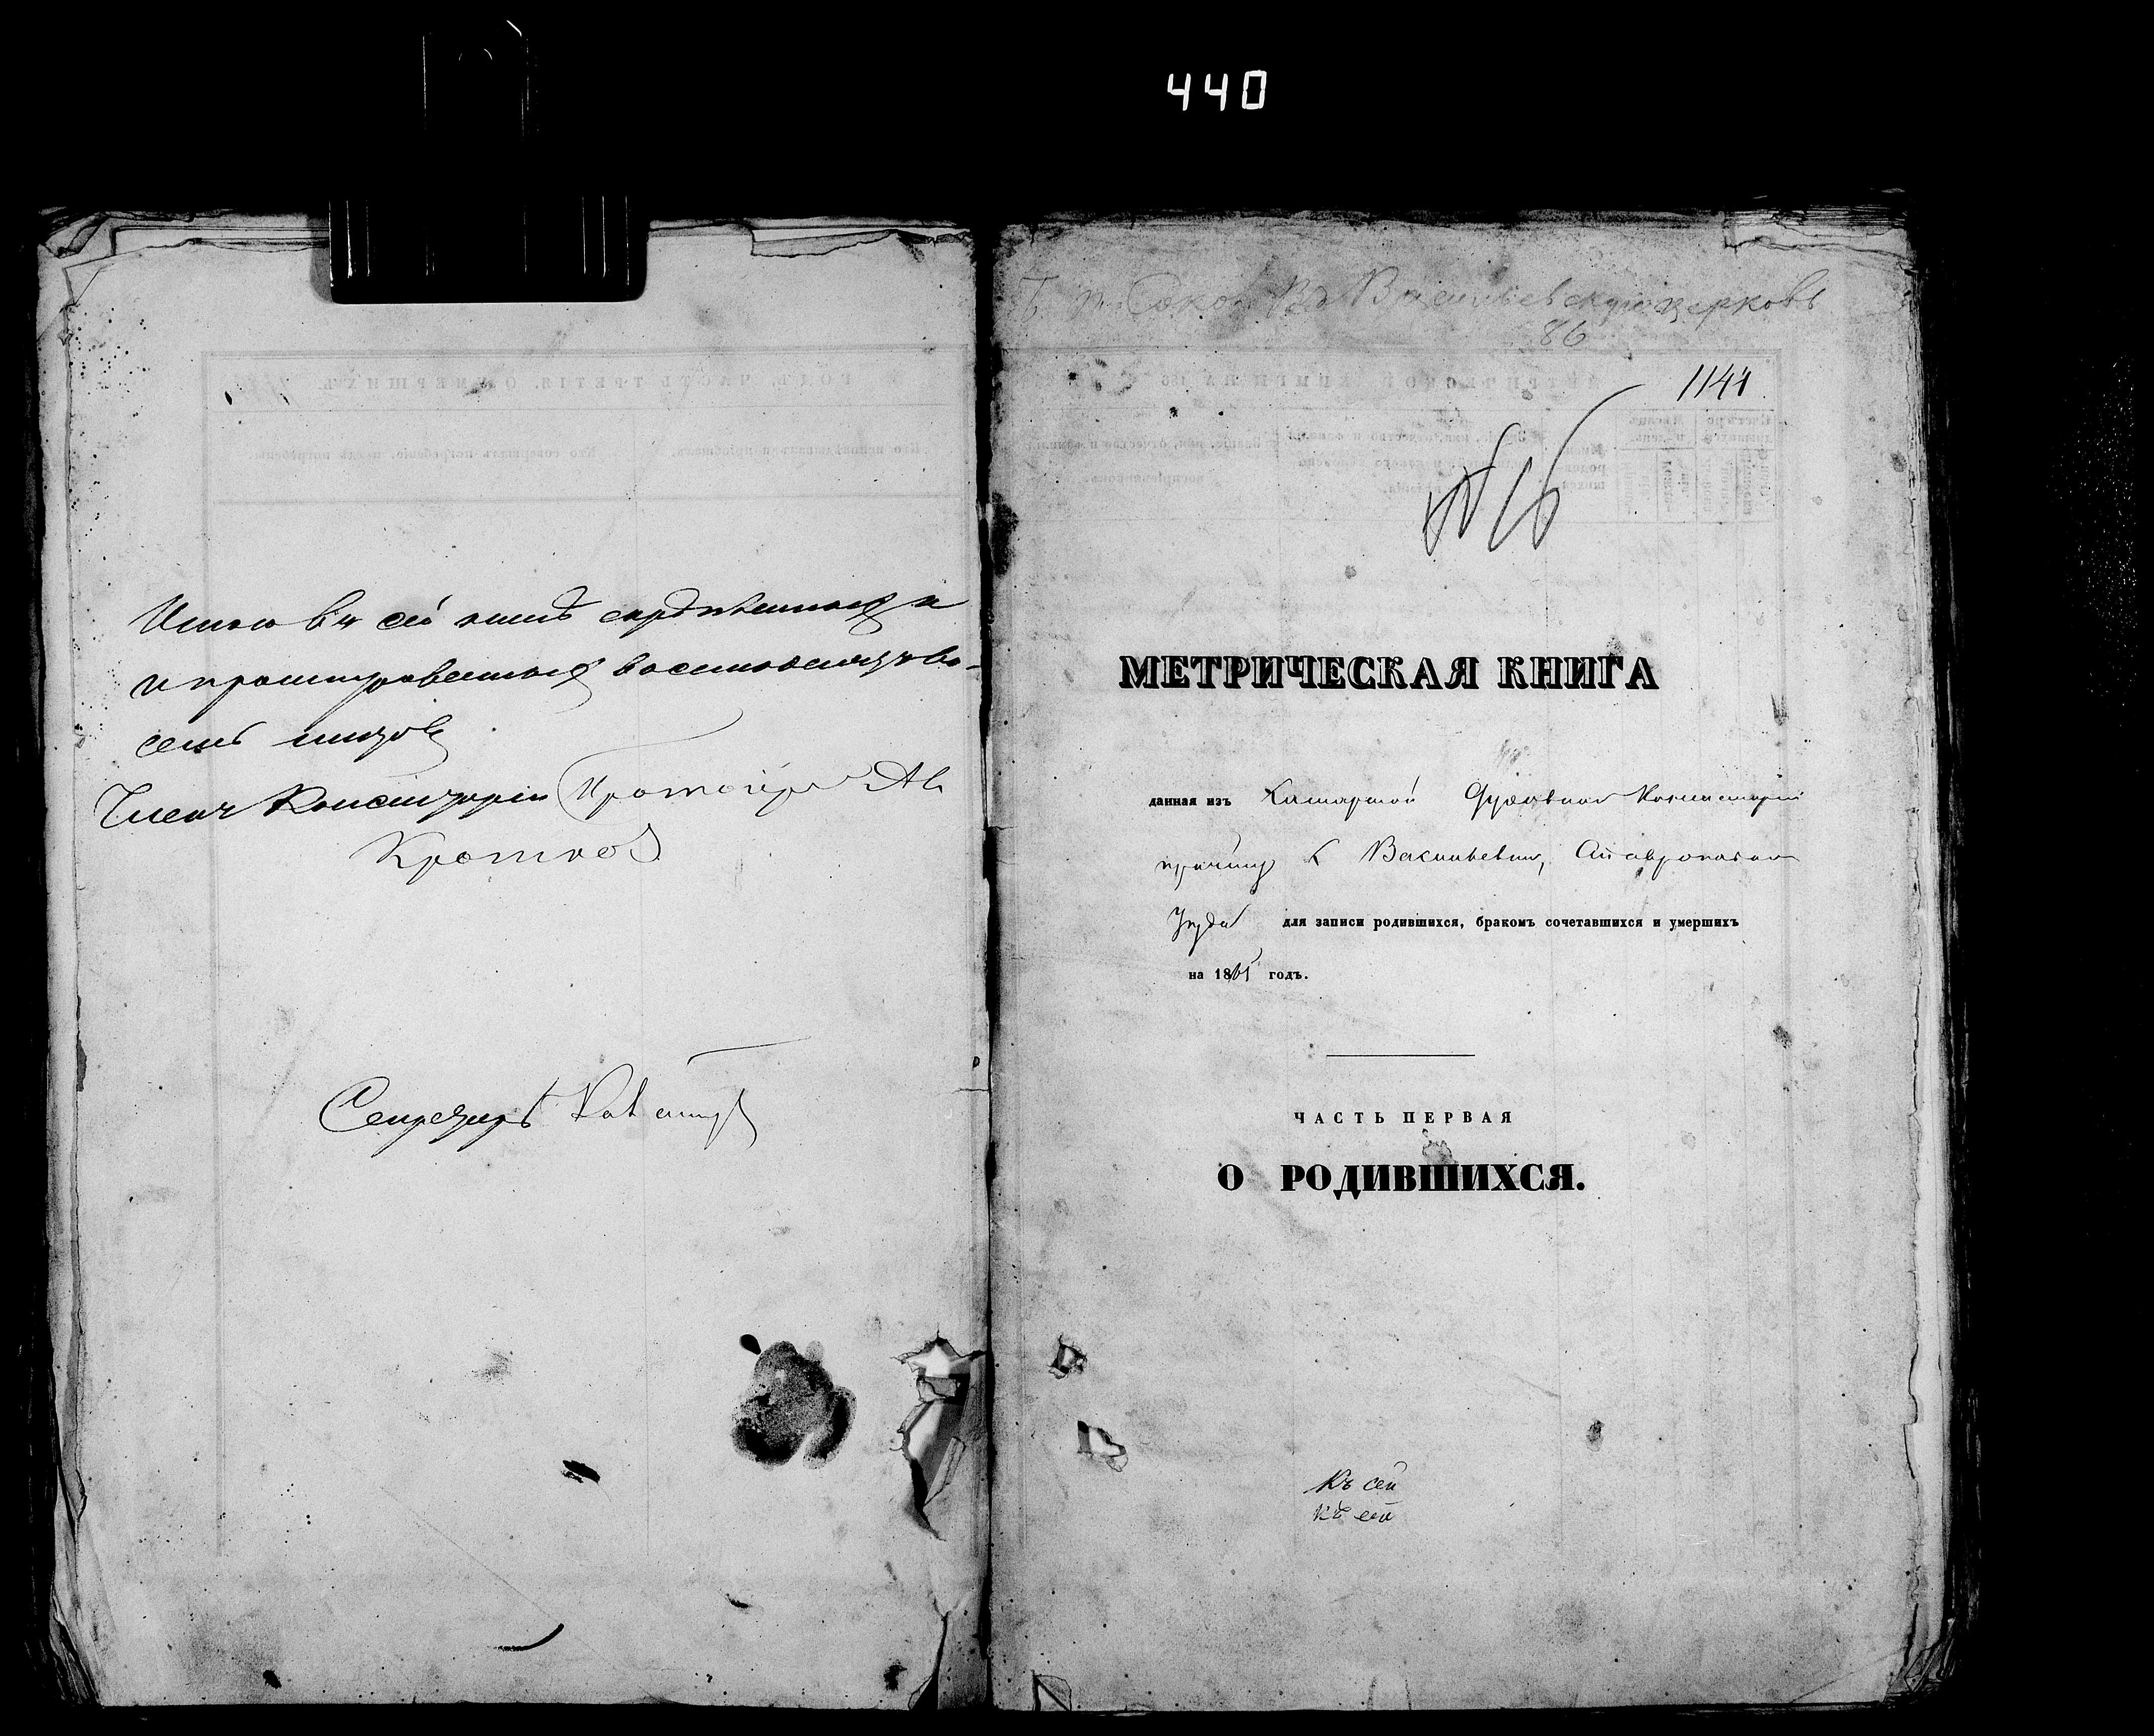 440
Итого въ сей книгѣ скрѣпленныхъ и
и прошнурованныхъ восемьдесятъ во-
семь листовъ
Членъ Консисторіи Протоіерей Ав.
Кротковъ
Секретарь
Въ Васильевскую церковь
86
1141
МЕТРИЧЕСКАЯ КНИГА
данная изъ Самарской Духовной Консисторіи
причту с. Васильевки, Ставропольскаго
уѣзда для записи родившихся, бракомъ сочетавшихся и умершихъ
на 1865 годъ.
ЧАСТЬ ПЕРВАЯ
О РОДИВШИХСЯ.
Къ сей
Къ сей